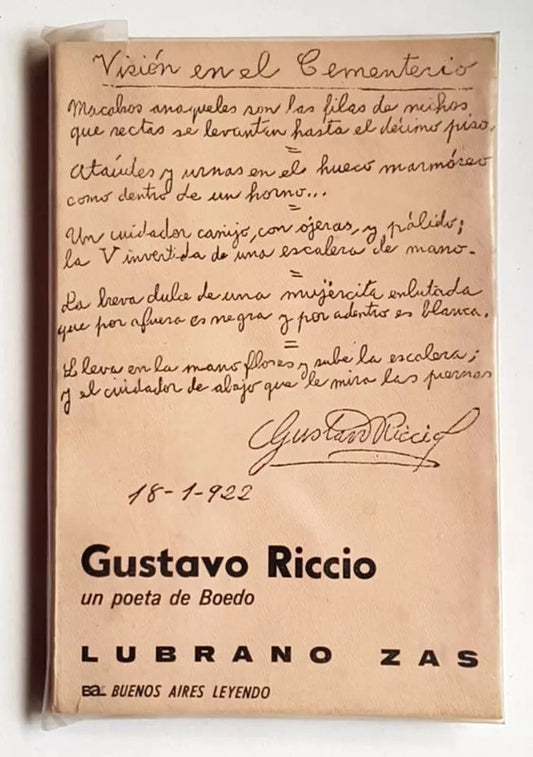 Visión en el Cementerio
Macabros anaqueles son las filas de nichos
que rectas se levantan hasta el décimo piso.
=
Ataúdes y urnas en el hueco marmóreo
como dentro de un horno...
=
Un cuidador canijo, con ojeras, y pálido;
la V invertida de una escalera de mano.
=
La breva dulce de una mujercita enlutada
que por afuera es negra y por adentro es blanca.
=
Lleva en la mano flores y sube la escalera;
y el cuidador de abajo que le mira las piernas
Gustavo Riccio
18-1-922
Gustavo Riccio
un poeta de Boedo
LUBRANO ZAS
BUENOS AIRES LEYENDO